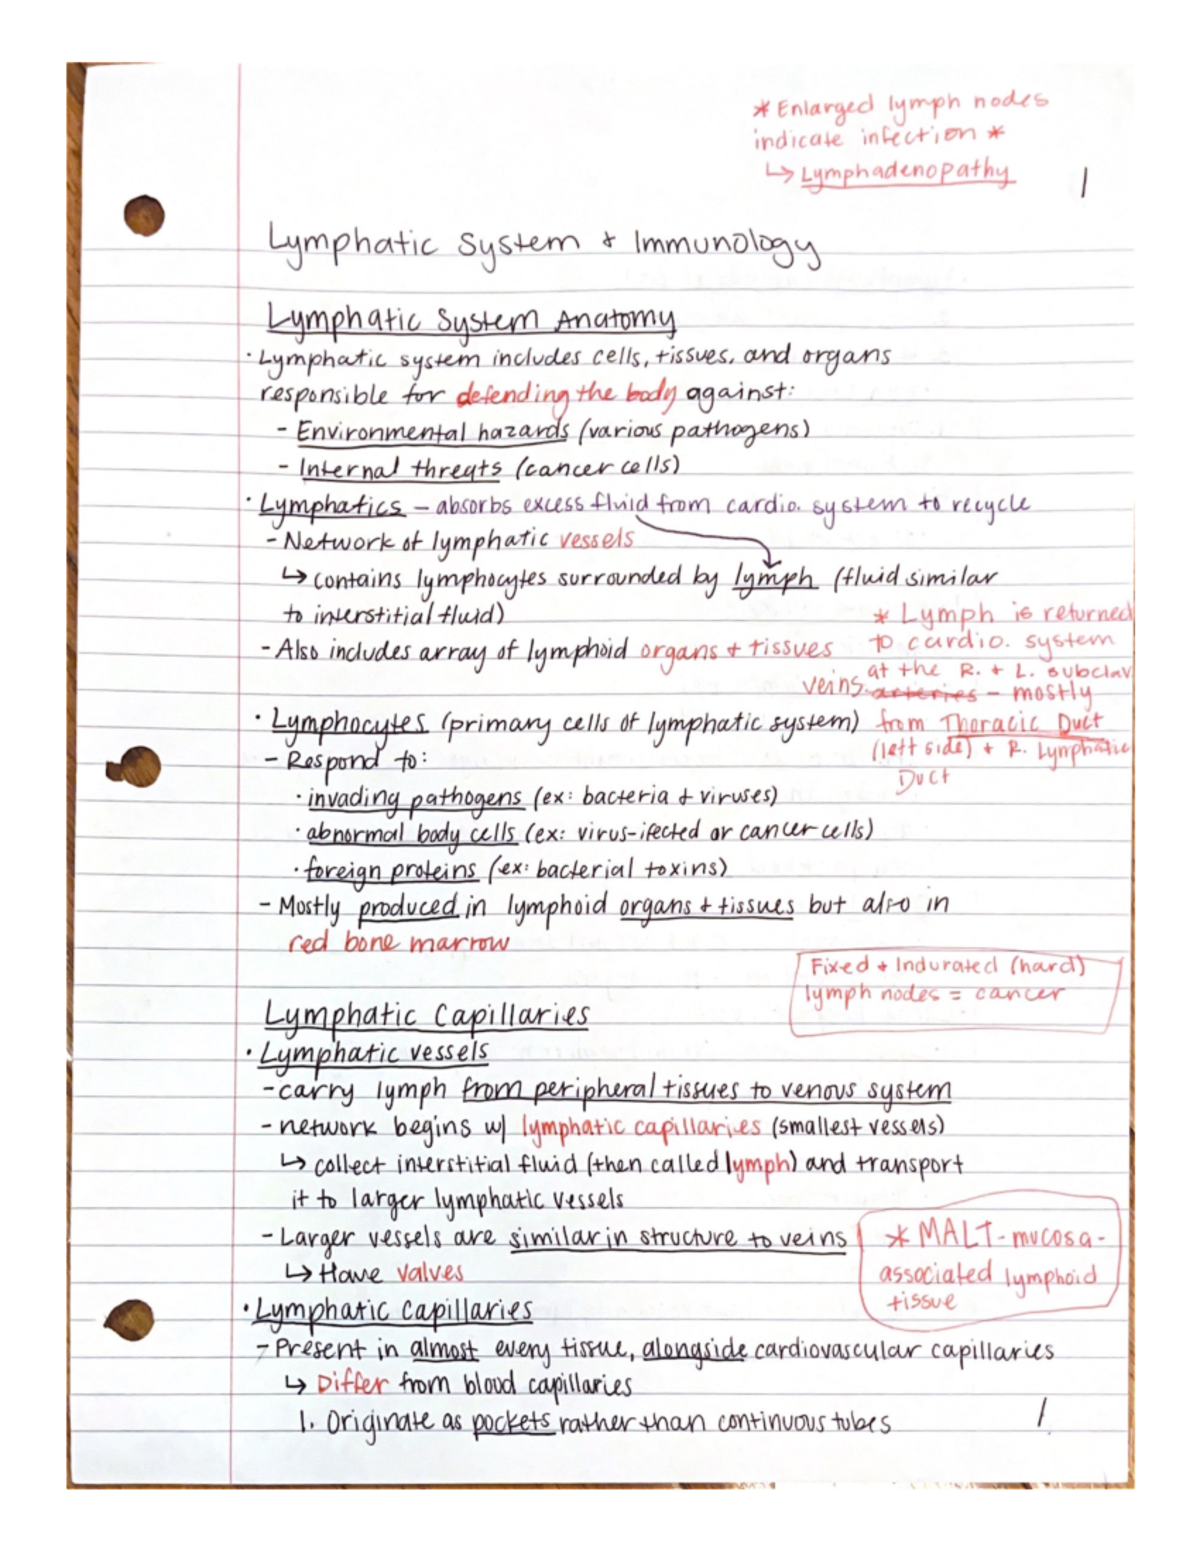 * Enlarged lymph nodes
indicate infection *
↳ Lymphadenopathy
1
Lymphatic System + Immunology
Lymphatic System Anatomy
· Lymphatic system includes cells, tissues, and organs
responsible for defending the body against:
- Environmental hazards (various pathogens)
- Internal threats (cancer cells)
· Lymphatics – absorbs excess fluid from cardio. system to recycle
- Network of lymphatic vessels
↳ contains lymphocytes surrounded by lymph (fluid similar
to interstitial fluid)
- Also includes array of lymphoid organs + tissues
* Lymph is returned
to cardio. system
at the R. + L. subclav
veins. arteries - mostly
from Thoracic Duct
(left side) + R. Lymphatic
Duct
· Lymphocytes (primary cells of lymphatic system)
- Respond to:
· invading pathogens (ex: bacteria + viruses)
· abnormal body cells (ex: virus-ifected or cancer cells)
· foreign proteins (ex: bacterial toxins)
- Mostly produced in lymphoid organs + tissues but also in
red bone marrow
Fixed + Indurated (hard)
lymph nodes = cancer
Lymphatic Capillaries
· Lymphatic vessels
- carry lymph from peripheral tissues to venous system
- network begins w/ lymphatic capillaries (smallest vessels)
↳ collect interstitial fluid (then called lymph) and transport
it to larger lymphatic vessels
- Larger vessels are similar in structure to veins
↳ Have valves
* MALT - mucosa-
associated lymphoid
tissue
· Lymphatic Capillaries
- Present in almost every tissue, alongside cardiovascular capillaries
↳ Differ from blood capillaries
1. Originate as pockets rather than continuous tubes
1